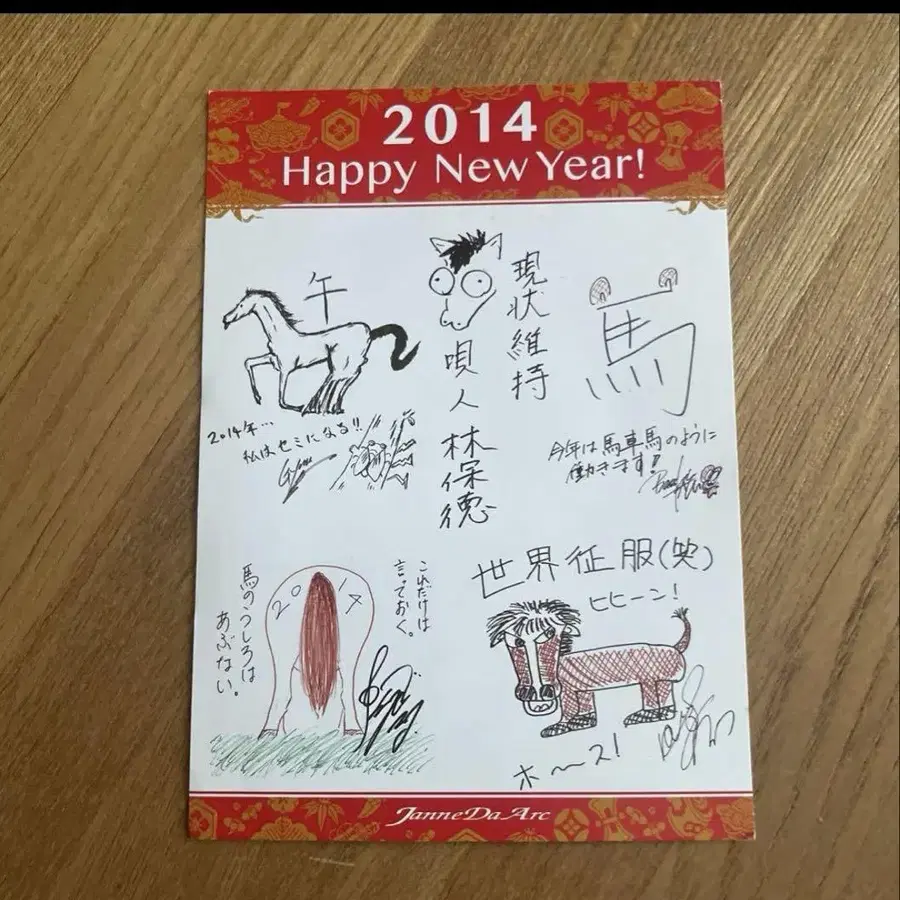 2014
Happy New Year!
午
2014年…
私はセミになる!!
現状維持
唄人 林保徳
馬
今年は馬車馬のように
働きます!
馬のうしろは
あぶない。
2014
これだけは
言っておく。
世界征服(笑)
ヒヒーン!
ホ〜ス!
Janne Da Arc